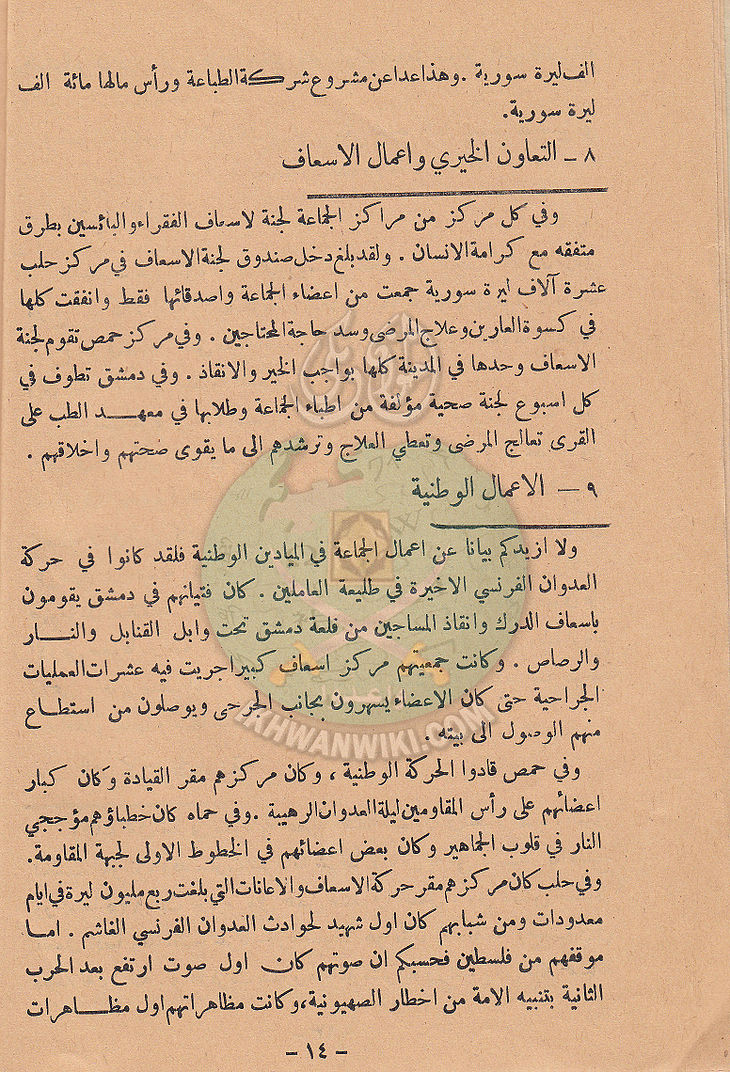 الف ليرة سورية . وهذا عدا عن مشروع شركة الطباعة ورأس مالها مائة الف
ليرة سورية .
٨ – التعاون الخيري واعمال الاسعاف
وفي كل مركز من مراكز الجماعة لجنة لاسعاف الفقراء والبائسين بطرق
متفقه مع كرامة الانسان . ولقد بلغ دخل صندوق لجنة الاسعاف في مركز حلب
عشرة آلاف ليرة سورية جمعت من اعضاء الجماعة واصدقائها فقط وانفقت كلها
في كسوة العارين وعلاج المرضى وسد حاجة المحتاجين . وفي مركز حمص تقوم لجنة
الاسعاف وحدها في المدينة كلها بواجب الخير والانقاذ . وفي دمشق تطوف في
كل اسبوع لجنة صحية مؤلفة من اطباء الجماعة وطلابها في معهد الطب على
القرى تعالج المرضى وتعطي العلاج وترشدهم الى ما يقوى صحتهم واخلاقهم .
٩ – الاعمال الوطنية
ولا ازيدكم بيانا عن اعمال الجماعة في الميادين الوطنية فلقد كانوا في حركة
العدوان الفرنسي الاخيرة في طليعة العاملين . كان فتيانهم في دمشق يقومون
باسعاف الدرك وانقاذ المساجين من قلعة دمشق تحت وابل القنابل والنار
والرصاص . وكانت جمعيتهم مركز اسعاف كبير اجريت فيه عشرات العمليات
الجراحية حتى كان الاعضاء يسهرون بجانب الجرحى ويوصلون من استطاع
منهم الوصول الى بيته .
وفي حمص قادوا الحركة الوطنية ، وكان مركزهم مقر القيادة وكان كبار
اعضائهم على رأس المقاومين ليلة العدوان الرهيبة . وفي حماه كان خطباؤهم مؤججي
النار في قلوب الجماهير وكان بعض اعضائهم في الخطوط الاولى لجبهة المقاومة .
وفي حلب كان مركزهم مقر حركة الاسعاف والاعانات التي بلغت ربع مليون ليرة في ايام
معدودات ومن شبابهم كان اول شهيد لحوادث العدوان الفرنسي الغاشم . اما
موقفهم من فلسطين فحسبكم ان صوتهم كان اول صوت ارتفع بعد الحرب
الثانية بتنبيه الامة من اخطار الصهيونية ، وكانت مظاهراتهم اول مظاهرات
– ١٤ –
IKHWANWIKI.COM